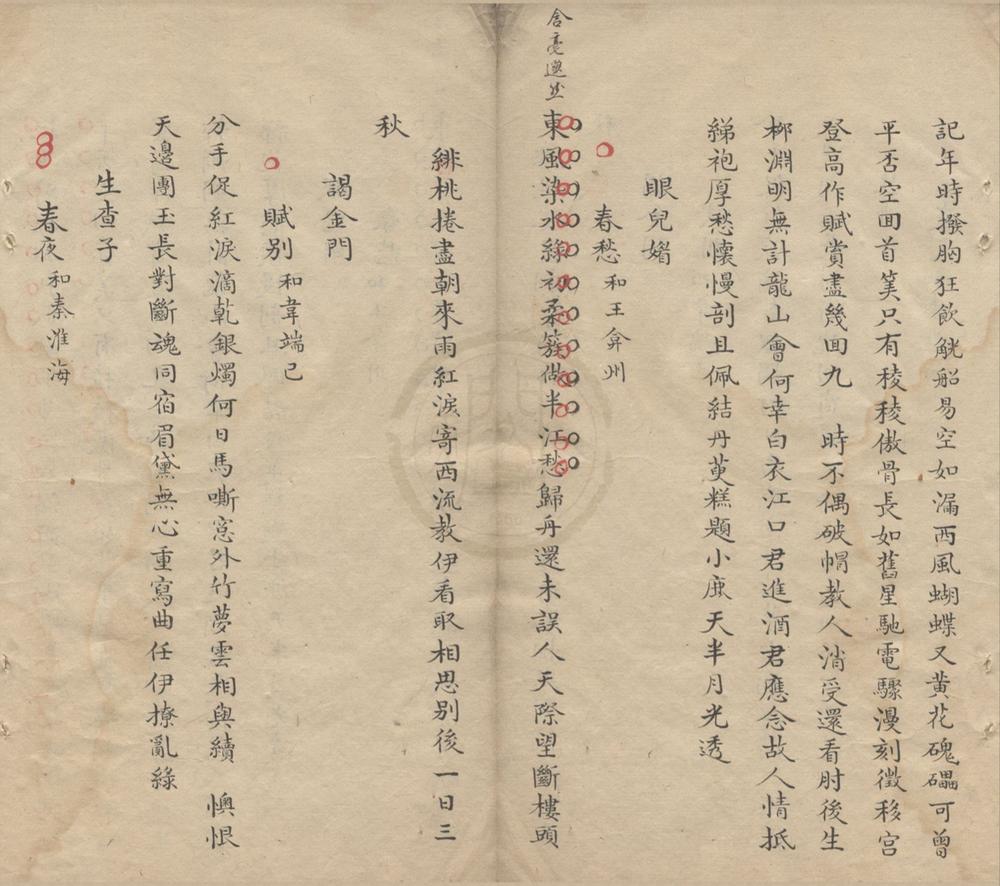 記年時撥胸狂飲觥船易空如漏西風蝴蝶又黃花磈礧可曾
平否空囬首笑只有稜稜傲骨長如舊星馳電驟漫刻徵移宮
登高作賦賞盡幾囬九　時不偶破帽教人消受還看肘後生
栁淵明無計龍山會何幸白衣江口君進酒君應念故人情抵
綈袍厚愁懷慢剖且佩結丹萸糕題小庻天半月光透
眼兒媚
春愁和王弇州
含毫邈然
東風染水綠初柔簇做半江愁歸舟還未誤人天際望斷樓頭
緋桃捲盡朝來雨紅淚寄西流教伊看取相思别後一日三
秋
謁金門
賦别和韋端己
分手促紅淚滴乾銀燭何日馬嘶窓外竹夢雲相與續　懊恨
天邊團玉長對斷魂同宿眉黛無心重寫曲任伊撩亂綠
生查子
春夜和秦淮海